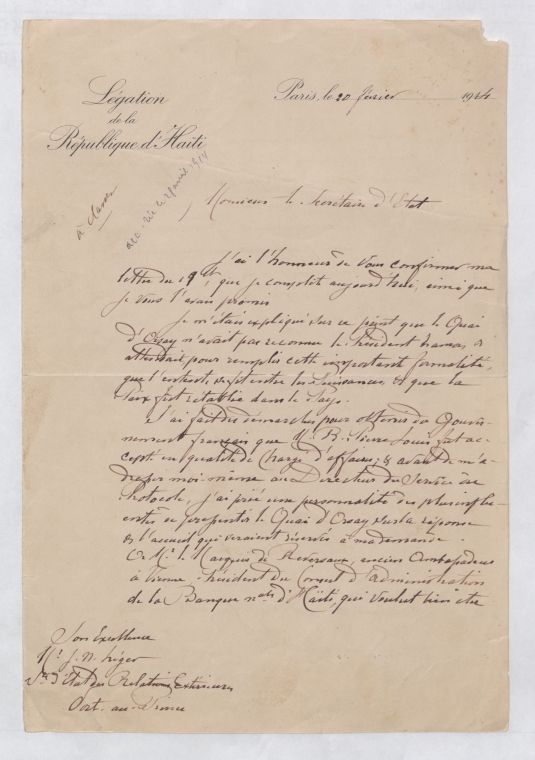 Légation
de la
République d'Haïti
Paris, le 20 février 1914
à classer
acc. 
Monsieur le Secrétaire d'Etat
J'ai l'honneur de vous confirmer ma
lettre du 19 ct, que je complète aujourd'hui, ainsi que
je vous l'avais promis
Je m'étais expliqué sur ce point que le Quai
d'Orsay n'avait pas reconnu le Président Zamor, &
attendait pour remplir cette importante formalité,
que l'entente se fit entre les Puissances, et que la
Paix fut rétablie dans le Pays.
J'ai fait des démarches pour obtenir du Gouver-
nement français que Mr. B. Pierre Louis fut ac-
cepté en qualité de Chargé d'affaires; & avant de m'a-
dresser moi-même au Directeur du Service du
Protocole, j'ai prié une personnalité des plus influ-
entes de pressentir le Quai d'Orsay sur la réponse
& l'accueil qui seraient réservés à ma demande.
Mr. le Marquis de Reversaux, ancien Ambassadeur
à Vienne, Président du Conseil d'administration
de la Banque nale d'Haïti, qui voulut bien être
Son Excellence
Mr. J. N. Léger
Sre d'Etat des Relations Extérieures
Port-au-Prince